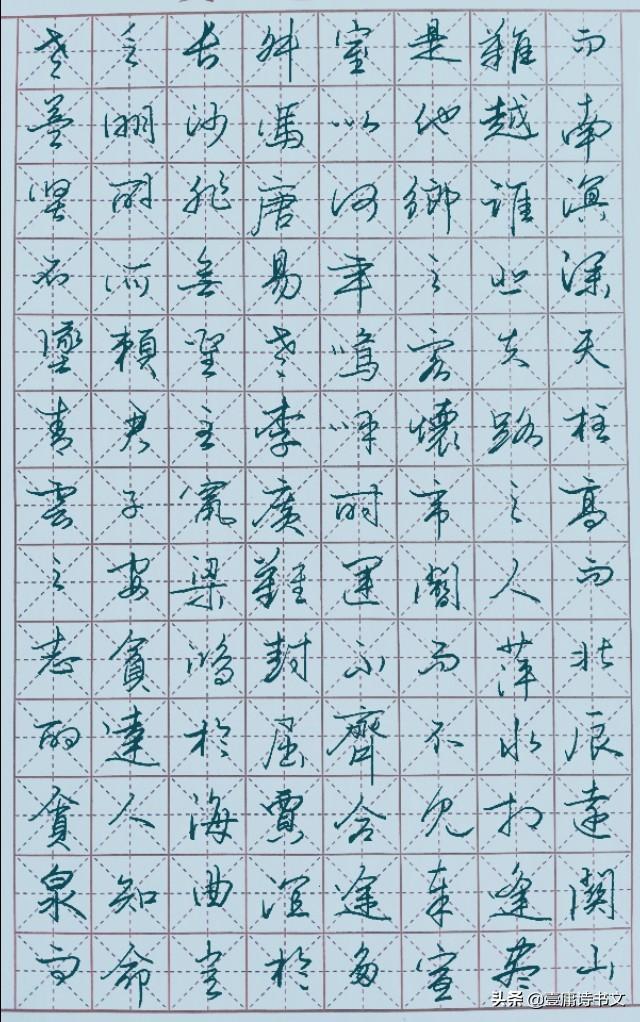 而南溟深天柱高而北辰遠關山
難越誰悲失路之人萍水相逢盡
是他鄉之客懷帝閽而不見奉宣
室以何年嗚呼時運不齊命途多
舛馮唐易老李廣難封屈賈誼於
長沙非無聖主竄梁鴻於海曲豈
乏明時所賴君子安貧達人知命
老益堅不墜青雲之志酌貪泉而
头条 @壹庸诗书文